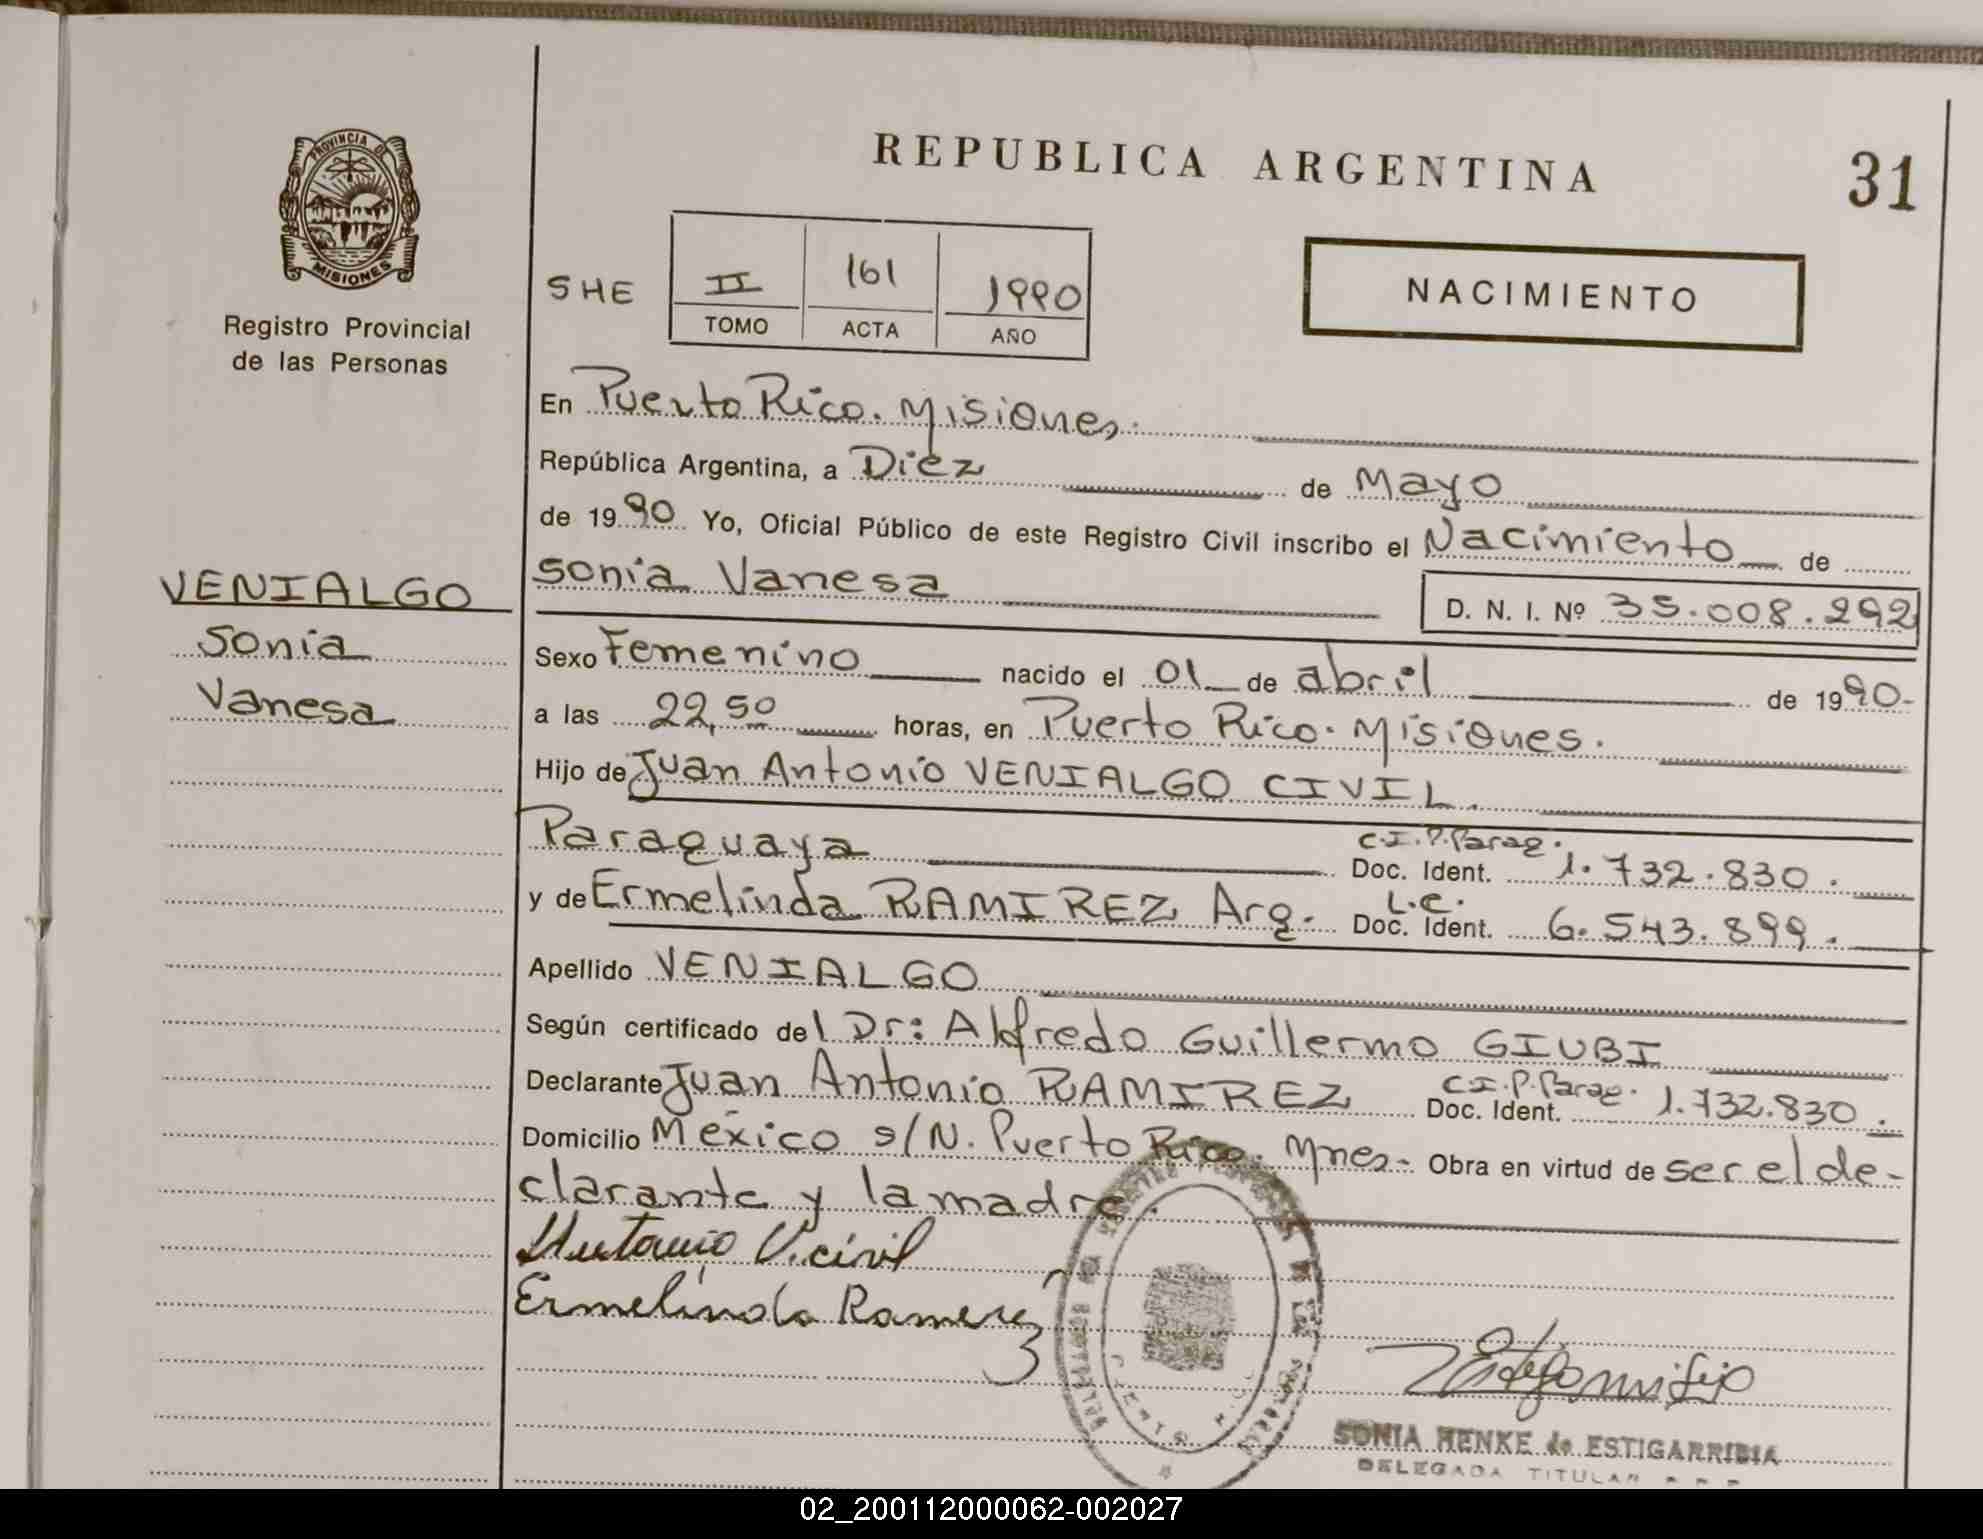 REPUBLICA ARGENTINA
31
PROVINCIA DE
MISIONES
Registro Provincial
de las Personas
SHE
II 161 1990
TOMO ACTA AÑO
NACIMIENTO
En Puerto Rico. Misiones.
República Argentina, a Diez de Mayo
de 1990 Yo, Oficial Público de este Registro Civil inscribo el Nacimiento de
VENIALGO
Sonia
Vanesa
Sonia Vanesa
D. N. I. Nº 35.008.292
Sexo Femenino nacido el 01 de abril de 1990.
a las 22,50 horas, en Puerto Rico. Misiones.
Hijo de Juan Antonio VENIALGO CIVIL.
Paraguaya C.I.P. Parag. Doc. Ident. 1.732.830.
y de Ermelinda RAMIREZ Arg. L.C. Doc. Ident. 6.543.899.
Apellido VENIALGO
Según certificado del Dr: Alfredo Guillermo GIUBI
Declarante Juan Antonio RAMIREZ C.I.P. Parag. Doc. Ident. 1.732.830.
Domicilio México s/N. Puerto Rico. Mnes- Obra en virtud de ser el de-
clarante y la madre.
Antonio V. civil
Ermelinda Ramirez
SONIA HENKE de ESTIGARRIBIA
DELEGADA TITULAR
02_200112000062-002027